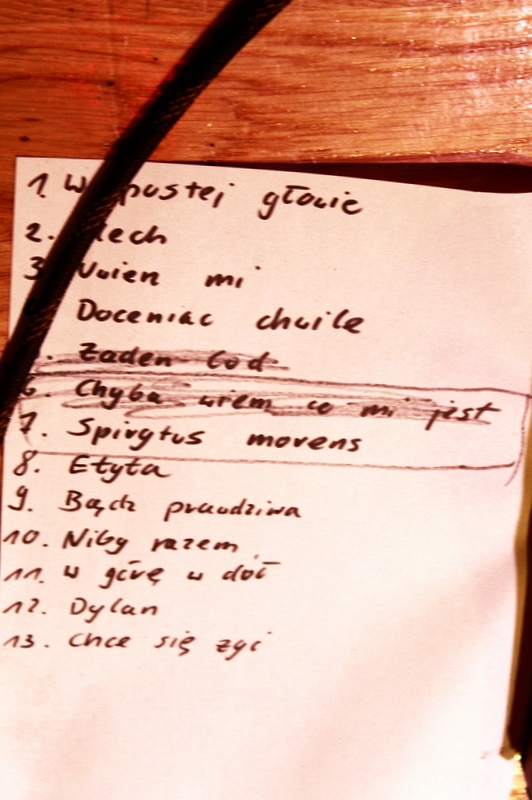 1. W pustej głowie
2. lech
3. Uwierz mi
Doceniac chwile
5. Żaden lod
6. Chyba wiem co mi jest
7. Spirytus movens
8. Etyta
9. Bądz prawdziwa
10. Niby razem
11. W górę w dół
12. Dylan
13. Chce się zyć